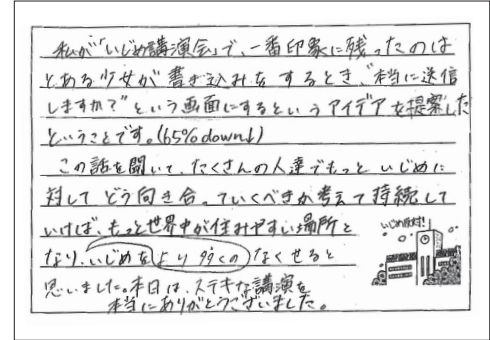 私が「いじめ講演会」で、一番印象に残ったのは
とある少女が書き込みをするとき、"本当に送信
しますか?"という画面にするというアイデアを提案した
ということです。(65%down↓)
この話を聞いて、たくさんの人達でもっといじめに
対してどう向き合っていくべきか考えて持続して
いけば、もっと世界中が住みやすい場所と
なり、いじめをより多くのなくせると
思いました。本日は、ステキな講演を
本当にありがとうございました。
いじめ反対!